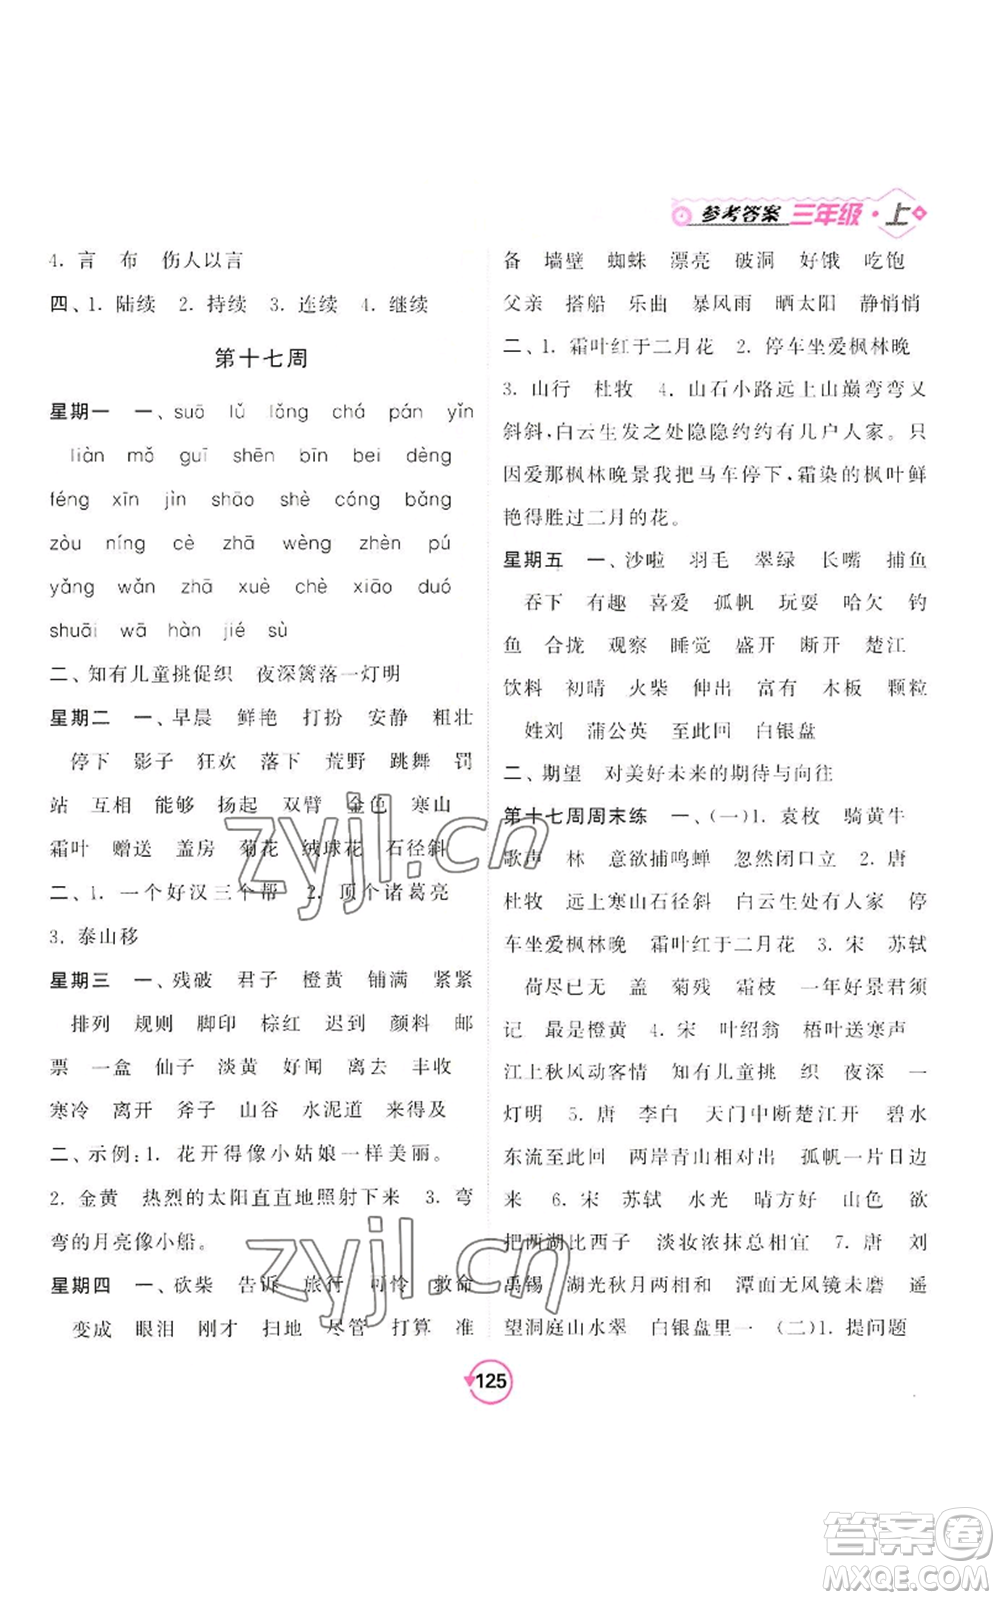 参考答案 三年级·上
4. 言 布 伤人以言
四、1. 陆续 2. 持续 3. 连续 4. 继续
第十七周
星期一 一、suō lǔ lǒng chá pán yǐn
liàn mǒ guī shēn bīn bei dèng
féng xīn jìn shāo shè cóng bǎng
zòu níng cè zhā wèng zhèn pú
yǎng wǎn zhā xuè chè xiāo duó
shuāi wā hàn jié sù
二、知有儿童挑促织 夜深篱落一灯明
星期二 一、早晨 鲜艳 打扮 安静 粗壮
停下 影子 狂欢 落下 荒野 跳舞 罚
站 互相 能够 扬起 双臂 金色 寒山
霜叶 赠送 盖房 菊花 绒球花 石径斜
二、1. 一个好汉三个帮 2. 顶个诸葛亮
3. 泰山移
星期三 一、残破 君子 橙黄 铺满 紧紧
排列 规则 脚印 棕红 迟到 颜料 邮
票 一盒 仙子 淡黄 好闻 离去 丰收
寒冷 离开 斧子 山谷 水泥道 来得及
二、示例：1. 花开得像小姑娘一样美丽。
2. 金黄 热烈的太阳直直地照射下来 3. 弯
弯的月亮像小船。
星期四 一、砍柴 告诉 旅行 可怜 救命
变成 眼泪 刚才 扫地 尽管 打算 准
备 墙壁 蜘蛛 漂亮 破洞 好饿 吃饱
父亲 搭船 乐曲 暴风雨 晒太阳 静悄悄
二、1. 霜叶红于二月花 2. 停车坐爱枫林晚
3. 山行 杜牧 4. 山石小路远上山巅弯弯又
斜斜，白云生发之处隐隐约约有几户人家。只
因爱那枫林晚景我把马车停下，霜染的枫叶鲜
艳得胜过二月的花。
星期五 一、沙啦 羽毛 翠绿 长嘴 捕鱼
吞下 有趣 喜爱 孤帆 玩耍 哈欠 钓
鱼 合拢 观察 睡觉 盛开 断开 楚江
饮料 初晴 火柴 伸出 富有 木板 颗粒
姓刘 蒲公英 至此回 白银盘
二、期望 对美好未来的期待与向往
第十七周周末练 一、（一）1. 袁枚 骑黄牛
歌声 林 意欲捕鸣蝉 忽然闭口立 2. 唐
杜牧 远上寒山石径斜 白云生处有人家 停
车坐爱枫林晚 霜叶红于二月花 3. 宋 苏轼
荷尽已无 盖 菊残 霜枝 一年好景君须
记 最是橙黄 4. 宋 叶绍翁 梧叶送寒声
江上秋风动客情 知有儿童挑 织 夜深 一
灯明 5. 唐 李白 天门中断楚江开 碧水
东流至此回 两岸青山相对出 孤帆一片日边
来 6. 宋 苏轼 水光 晴方好 山色 欲
把西湖比西子 淡妆浓抹总相宜 7. 唐 刘
禹锡 湖光秋月两相和 潭面无风镜未磨 遥
望洞庭山水翠 白银盘里一 （二）1. 提问题
125
zyjl.cn
zyjl.cn
答案圈
MXQE.COM